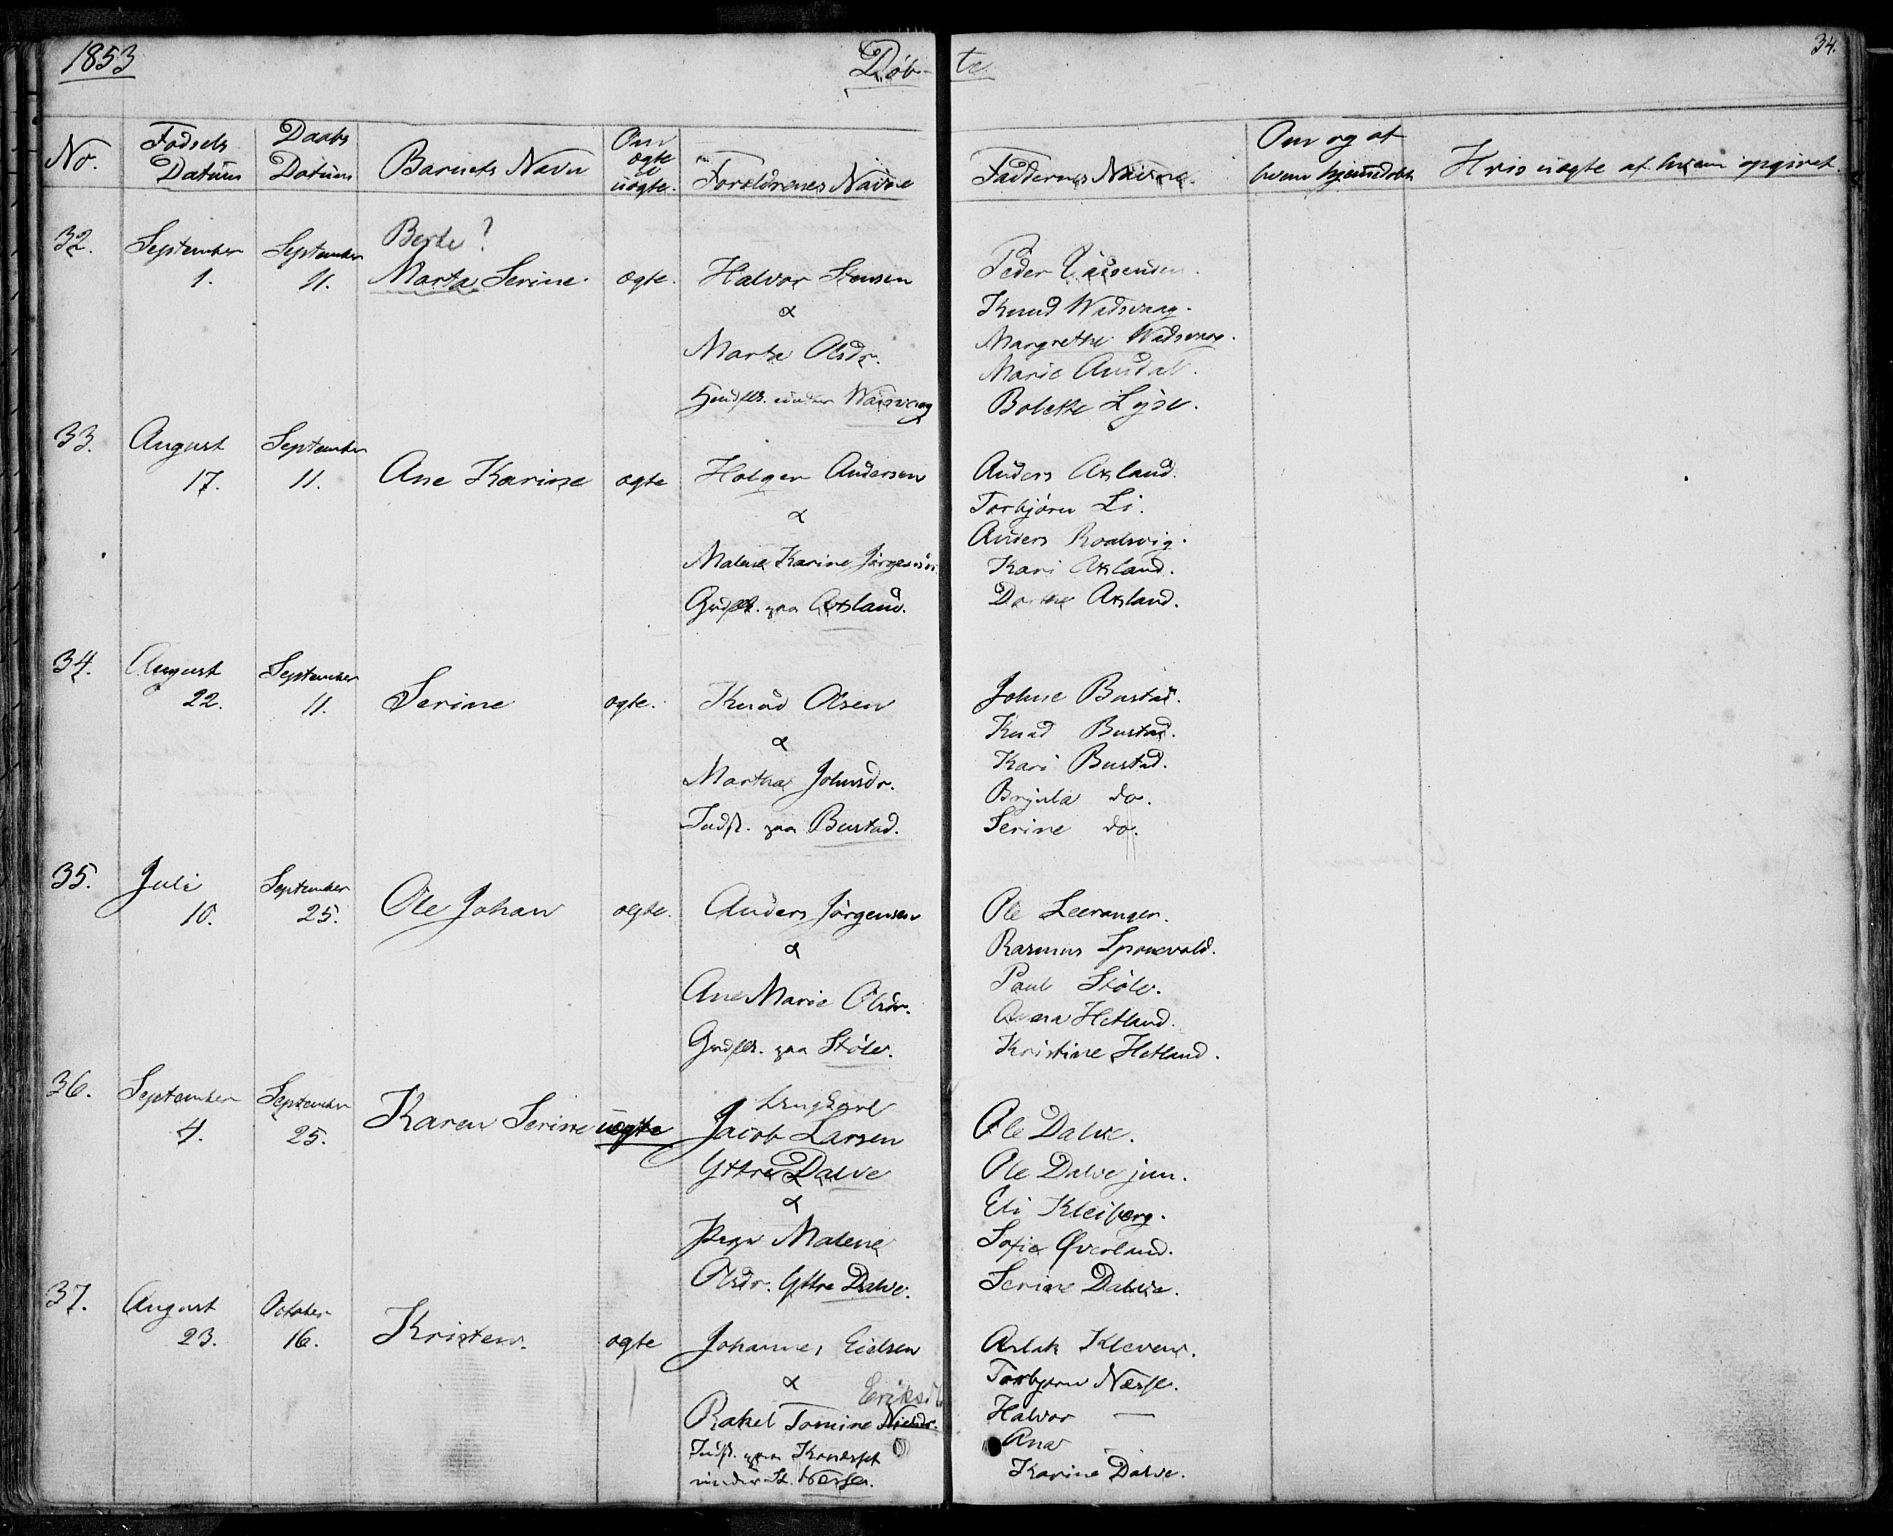 1853
Døb-
te
34.
No.
Fødsels Datum
Daabs Datum
Barnets Navn
Om ægte el uægte.
Forældrenes Navne
Faddernes Navne.
Om og af hvem hjemmedøbt
Hvis uægte af hvem opgivet.
32.
September 1.
September 11.
Berte?
Marta Serine.
ægte.
Halvor Stensen
&
Marta Olsdr.
under Wadsvaag
Peder
Knud Wadsvaag.
Margrethe Wadsvaag.
Marie Ausdal.
Bolette Lyse.
33.
August 17.
September 11.
Ane Karine
ægte
Holger Andersen
&
Malene Karine Jørgensdr.
Grdfk. paa Axland.
Anders Axland.
Torbjørn Li.
Anders Roalsvig.
Kari Axland.
Dorthe Axland.
34.
August 22.
September 11.
Serine
ægte.
Knud Olsen
&
Martha Johnsdr.
Indst. paa Bustad.
Johne Bustad.
Knud Bustad.
Kari Bustad.
Brynla do.
Serine do.
35.
Juli 10.
September 25.
Ole Johan
ægte.
Anders Jørgensen
&
Ane Marie Olsdr.
Grdfk. paa Støle.
Ole Leeranger.
Rasmus Sponevold.
Paul Støle.
Anna Hetland.
Kristine Hetland.
36.
September 4.
September 25.
Karen Serine
uægte
Ungkarl
Jacob Larsen
Yttre Dalve
&
Pige Malene
Olsdr. Yttre Dalve.
Ole Dalve.
Ole Dalve jun.
Eli Kleiberg.
Sofie Øverland.
Serine Dalve.
37.
August 23.
October 16.
Kristen.
ægte
Johannes Eielsen
&
Eriksd
Rakel Tomine Nielsdr.
Indst. paa
under St. Nesse.
Aslak Kleven.
Torbjørn Næsse.
Halvor —
Ana
Karine Dalve.